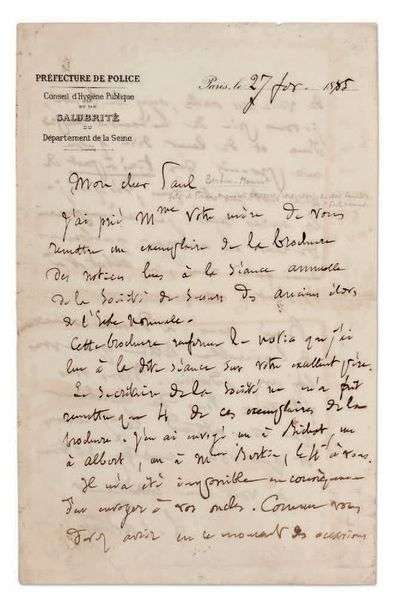 PRÉFECTURE DE POLICE
Conseil d'Hygiène Publique
ET DE
SALUBRITÉ
DU
Département de la Seine
Paris, le 27 fev. 1885
Mon cher Paul
J'ai prié Mme votre mère de vous
remettre un exemplaire de la brochure
des notices lues à la Séance annuelle
de la Société de Secours des anciens élèves
de l'Ecole normale.
Cette brochure renferme la notice que j'ai
lue à la dite séance sur votre excellent père.
Le Secrétaire de la Société ne m'a fait
remettre que 4 de ces exemplaires de la
brochure. J'en ai envoyé un à Bichat un
à Albert, un à Mme Bertin, le 4e à vous.
Il m'a été impossible en conséquence
d'en envoyer à vos oncles. Comme vous
devez avoir en ce moment des occasions